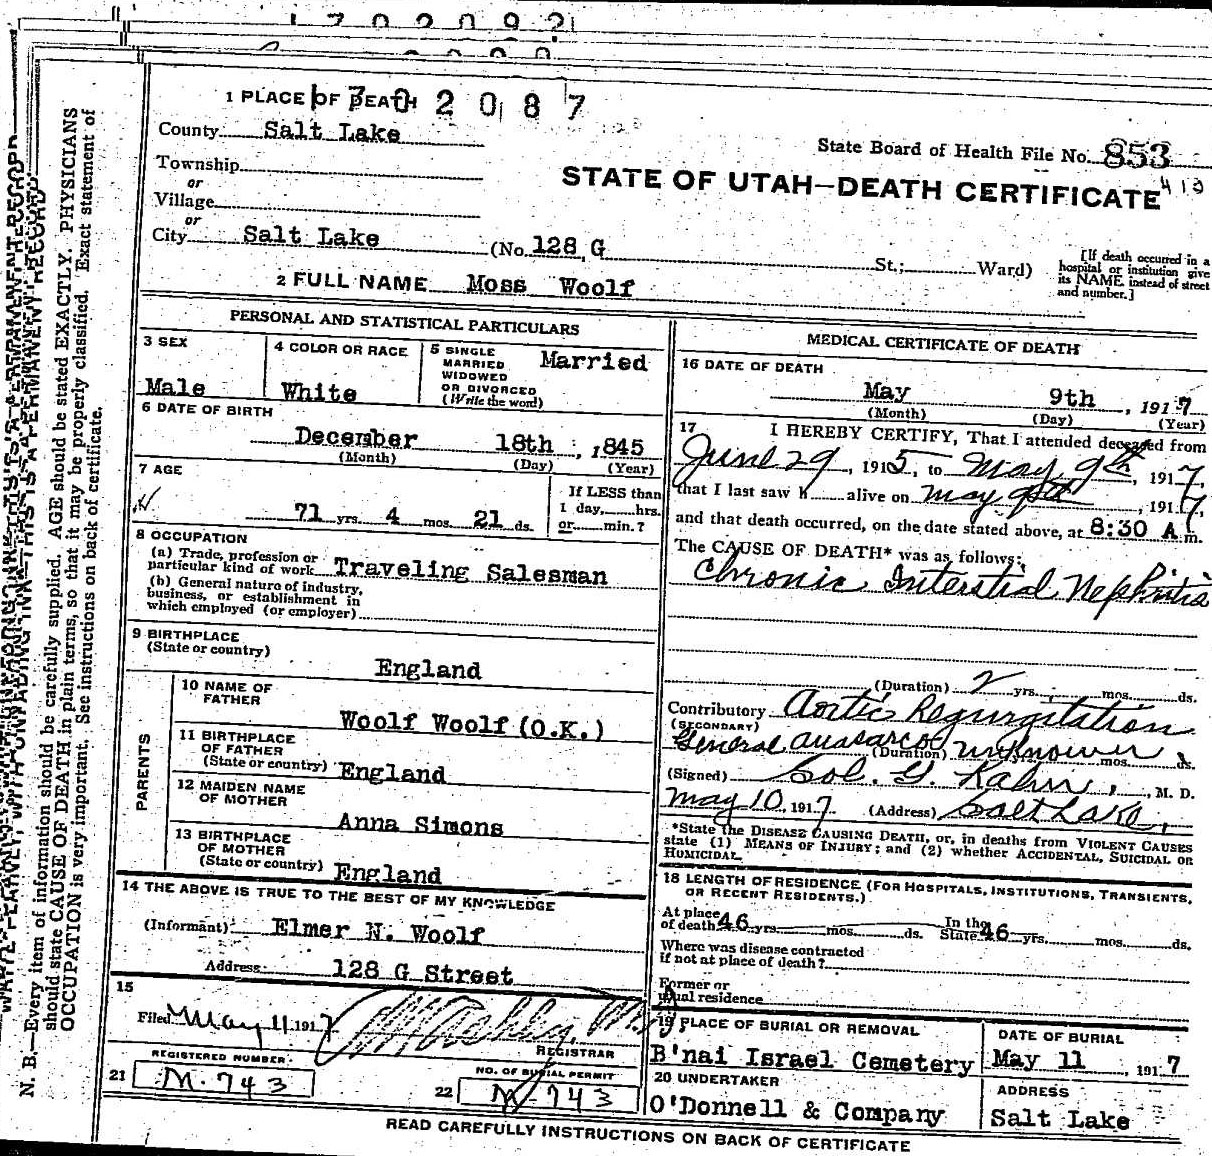 1702092
1 PLACE OF DEATH
1702087
County Salt Lake
State Board of Health File No. 853
Township
or
STATE OF UTAH—DEATH CERTIFICATE
413
Village
or
City Salt Lake (No. 128 G St.; Ward)
[If death occurred in a hospital or institution give its NAME instead of street and number.]
2 FULL NAME Moss Woolf
PERSONAL AND STATISTICAL PARTICULARS
3 SEX
Male
4 COLOR OR RACE
White
5 SINGLE
MARRIED
WIDOWED
OR DIVORCED
(Write the word)
Married
6 DATE OF BIRTH
December 18th, 1845
(Month) (Day) (Year)
7 AGE
71 yrs. 4 mos. 21 ds.
If LESS than
1 day, hrs.
or min.?
8 OCCUPATION
(a) Trade, profession or
particular kind of work Traveling Salesman
(b) General nature of industry,
business, or establishment in
which employed (or employer)
9 BIRTHPLACE
(State or country)
England
PARENTS
10 NAME OF
FATHER
Woolf Woolf (O.K.)
11 BIRTHPLACE
OF FATHER
(State or country) England
12 MAIDEN NAME
OF MOTHER
Anna Simons
13 BIRTHPLACE
OF MOTHER
(State or country) England
14 THE ABOVE IS TRUE TO THE BEST OF MY KNOWLEDGE
(Informant) Elmer N. Woolf
Address 128 G Street
15
Filed May 11 1917
REGISTRAR
REGISTERED NUMBER.
21 M-743
NO. OF BURIAL PERMIT
22 M-743
MEDICAL CERTIFICATE OF DEATH
16 DATE OF DEATH
May 9th, 1917
(Month) (Day) (Year)
17 I HEREBY CERTIFY, That I attended deceased from
June 29, 1915, to May 9th, 1917,
that I last saw h alive on May 9th, 1917,
and that death occurred, on the date stated above, at 8:30 A m.
The CAUSE OF DEATH* was as follows:
Chronic Interstial Nephritis
(Duration) 2 yrs. mos. ds.
Contributory Aortic Regurgitation
(SECONDARY)
General anasarca (Duration) unknown mos. ds.
(Signed) Sol. G. Kahn, M. D.
May 10, 1917 (Address) Salt Lake.
*State the DISEASE CAUSING DEATH, or, in deaths from VIOLENT CAUSES
state (1) MEANS OF INJURY; and (2) whether ACCIDENTAL, SUICIDAL OR
HOMICIDAL.
18 LENGTH OF RESIDENCE (FOR HOSPITALS, INSTITUTIONS, TRANSIENTS,
OR RECENT RESIDENTS.)
At place
of death 46 yrs. mos. ds. In the
State 46 yrs. mos. ds.
Where was disease contracted
if not at place of death?
Former or
usual residence
19 PLACE OF BURIAL OR REMOVAL
B'nai Israel Cemetery
DATE OF BURIAL
May 11, 1917
20 UNDERTAKER
O'Donnell & Company
ADDRESS
Salt Lake
READ CAREFULLY INSTRUCTIONS ON BACK OF CERTIFICATE
WRITE PLAINLY, WITH UNFADING INK—THIS IS A PERMANENT RECORD
N. B.—Every item of information should be carefully supplied. AGE should be stated EXACTLY. PHYSICIANS
should state CAUSE OF DEATH in plain terms, so that it may be properly classified. Exact statement of
OCCUPATION is very important. See instructions on back of certificate.